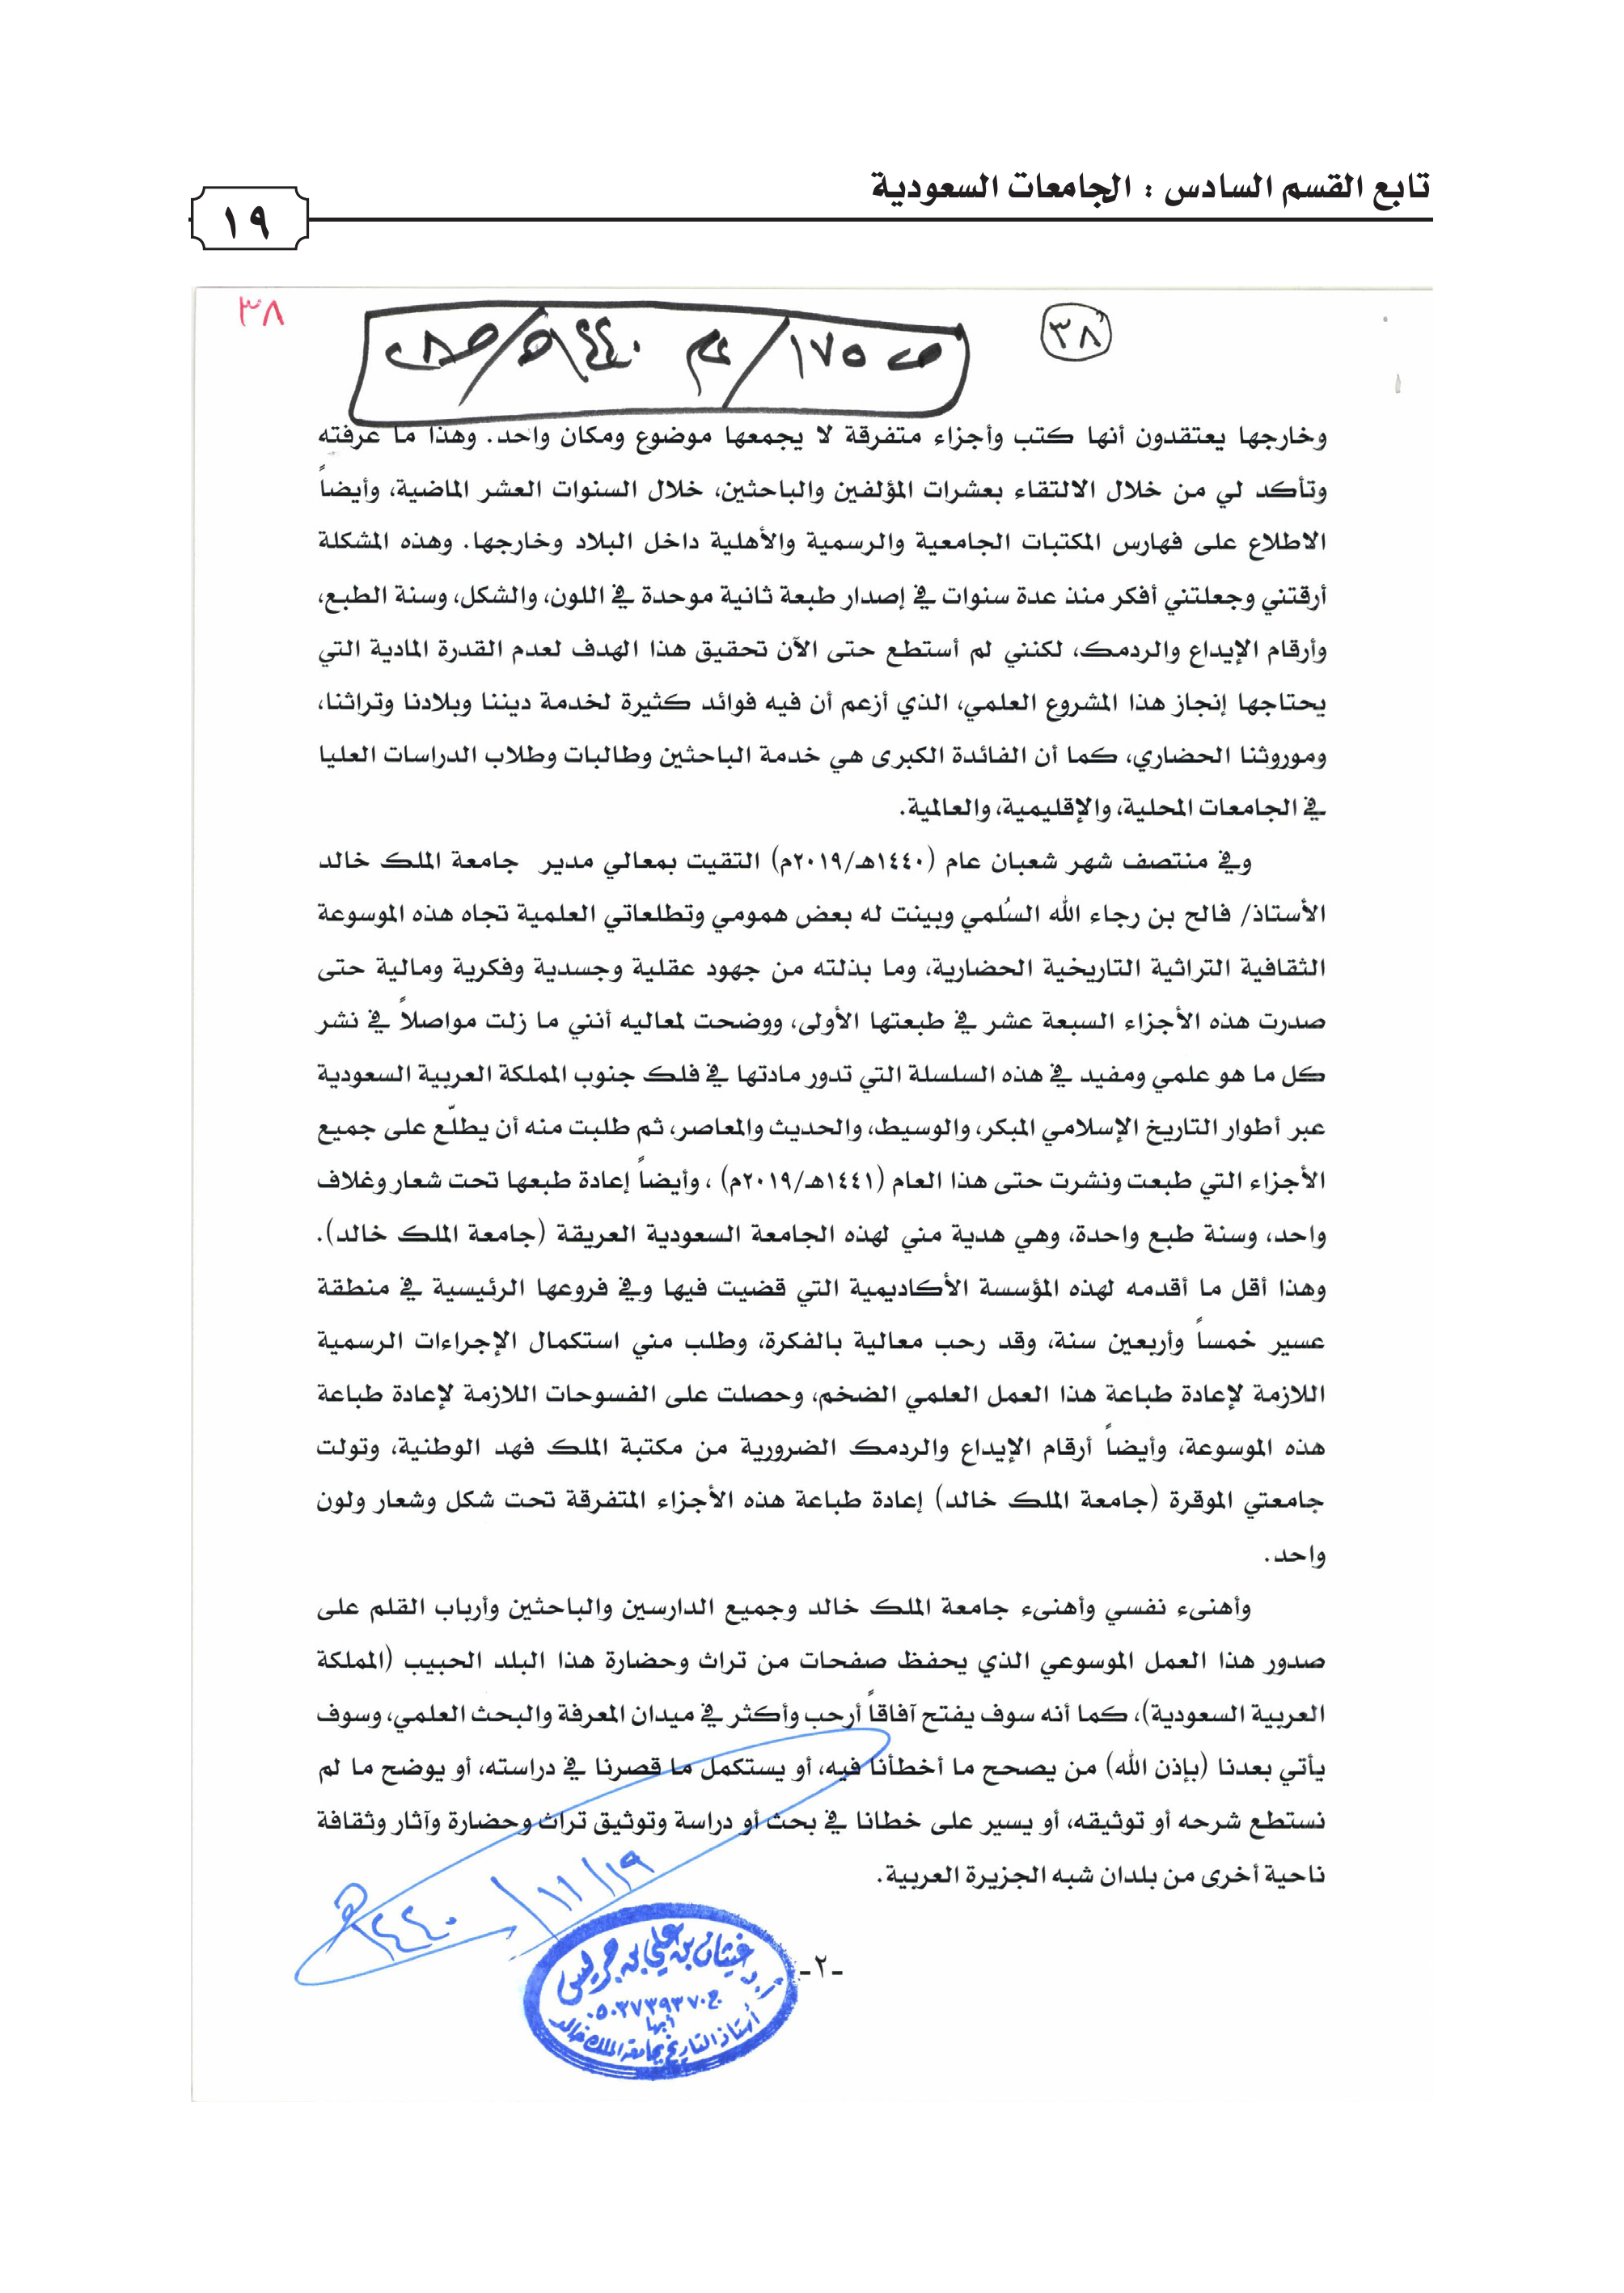 تابع القسم السادس : الجامعات السعودية
١٩
٣٨
٣٨
ص ١٧٥ / ١٤٤٠هـ /
وخارجها يعتقدون أنها كتب وأجزاء متفرقة لا يجمعها موضوع ومكان واحد. وهذا ما عرفته
وتأكد لي من خلال الالتقاء بعشرات المؤلفين والباحثين، خلال السنوات العشر الماضية، وأيضاً
الاطلاع على فهارس المكتبات الجامعية والرسمية والأهلية داخل البلاد وخارجها. وهذه المشكلة
أرقتني وجعلتني أفكر منذ عدة سنوات في إصدار طبعة ثانية موحدة في اللون، والشكل، وسنة الطبع،
وأرقام الإيداع والردمك، لكنني لم أستطع حتى الآن تحقيق هذا الهدف لعدم القدرة المادية التي
يحتاجها إنجاز هذا المشروع العلمي، الذي أزعم أن فيه فوائد كثيرة لخدمة ديننا وبلادنا وتراثنا،
وموروثنا الحضاري، كما أن الفائدة الكبرى هي خدمة الباحثين وطالبات وطلاب الدراسات العليا
في الجامعات المحلية، والإقليمية، والعالمية.
وفي منتصف شهر شعبان عام (١٤٤٠هـ/٢٠١٩م) التقيت بمعالي مدير جامعة الملك خالد
الأستاذ/ فالح بن رجاء الله السُلمي وبينت له بعض همومي وتطلعاتي العلمية تجاه هذه الموسوعة
الثقافية التراثية التاريخية الحضارية، وما بذلته من جهود عقلية وجسدية وفكرية ومالية حتى
صدرت هذه الأجزاء السبعة عشر في طبعتها الأولى، ووضحت لمعاليه أنني ما زلت مواصلاً في نشر
كل ما هو علمي ومفيد في هذه السلسلة التي تدور مادتها في فلك جنوب المملكة العربية السعودية
عبر أطوار التاريخ الإسلامي المبكر، والوسيط، والحديث والمعاصر، ثم طلبت منه أن يطلّع على جميع
الأجزاء التي طبعت ونشرت حتى هذا العام (١٤٤١هـ/٢٠١٩م) ، وأيضاً إعادة طبعها تحت شعار وغلاف
واحد، وسنة طبع واحدة، وهي هدية مني لهذه الجامعة السعودية العريقة (جامعة الملك خالد).
وهذا أقل ما أقدمه لهذه المؤسسة الأكاديمية التي قضيت فيها وفي فروعها الرئيسية في منطقة
عسير خمساً وأربعين سنة، وقد رحب معالية بالفكرة، وطلب مني استكمال الإجراءات الرسمية
اللازمة لإعادة طباعة هذا العمل العلمي الضخم، وحصلت على الفسوحات اللازمة لإعادة طباعة
هذه الموسوعة، وأيضاً أرقام الإيداع والردمك الضرورية من مكتبة الملك فهد الوطنية، وتولت
جامعتي الموقرة (جامعة الملك خالد) إعادة طباعة هذه الأجزاء المتفرقة تحت شكل وشعار ولون
واحد.
وأهنىء نفسي وأهنىء جامعة الملك خالد وجميع الدارسين والباحثين وأرباب القلم على
صدور هذا العمل الموسوعي الذي يحفظ صفحات من تراث وحضارة هذا البلد الحبيب (المملكة
العربية السعودية)، كما أنه سوف يفتح آفاقاً أرحب وأكثر في ميدان المعرفة والبحث العلمي، وسوف
يأتي بعدنا (بإذن الله) من يصحح ما أخطأنا فيه، أو يستكمل ما قصرنا في دراسته، أو يوضح ما لم
نستطع شرحه أو توثيقه، أو يسير على خطانا في بحث أو دراسة وتوثيق تراث وحضارة وآثار وثقافة
ناحية أخرى من بلدان شبه الجزيرة العربية.
١٩/١١/١٤٤٠هـ
أ.د غيثان بن علي بن جريس
ج ٠٥٠٣٧٣٩٣٧٠
أبها
أستاذ التاريخ بجامعة الملك خالد
-٢-